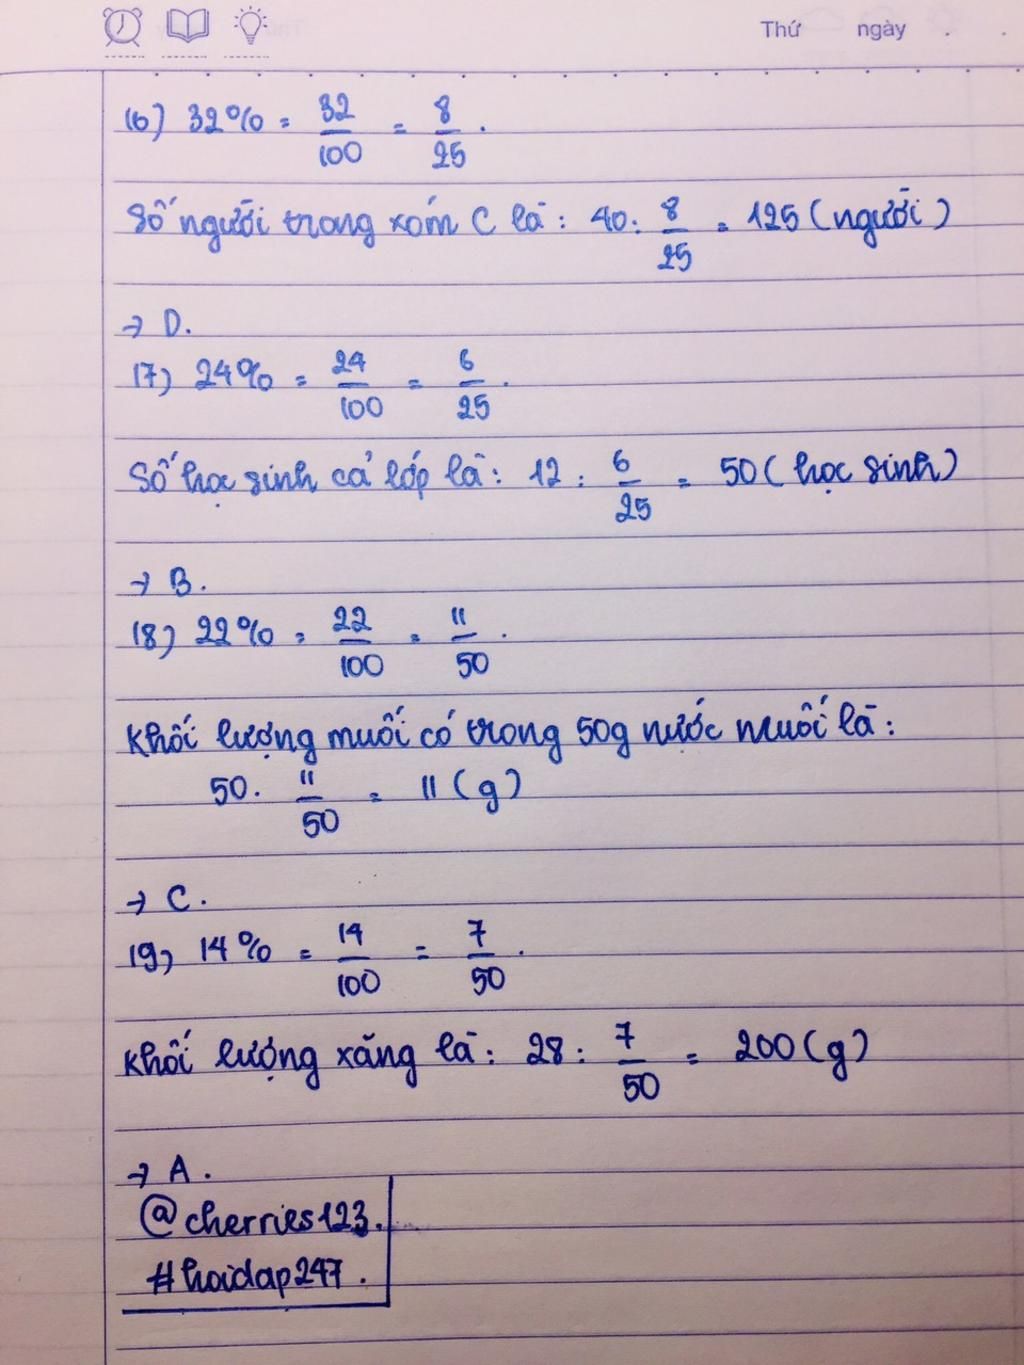 Thứ ngày
16) 32% = 32/100 = 8/25.
Số người trong xóm C là: 40: 8/25 = 125 (người)
→ D.
17) 24% = 24/100 = 6/25.
Số học sinh cả lớp là: 12 : 6/25 = 50 (học sinh)
→ B.
18) 22% = 22/100 = 11/50.
Khối lượng muối có trong 50g nước muối là:
50. 11/50 = 11 (g)
→ C.
19) 14% = 14/100 = 7/50.
Khối lượng xăng là: 28 : 7/50 = 200 (g)
→ A.
@cherries123.
#hoidap247.